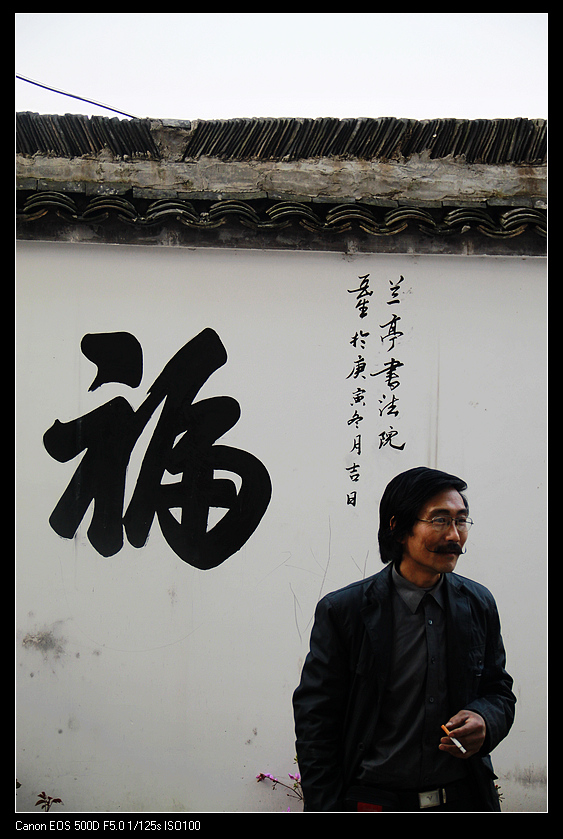 兰亭书法院
生於庚寅冬月吉日
福
Canon EOS 500D F5.0 1/125s ISO100